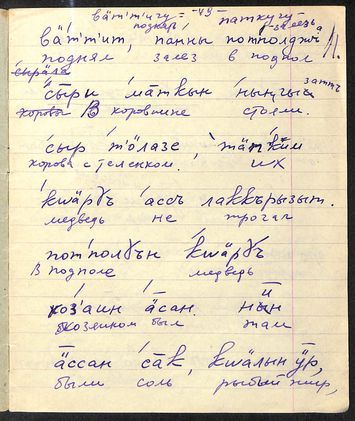 ва̄т'т'ичу – -чу – паткучу –
поднять залезть
ва̄'т'т'ит, па̄ннъ потполджъ 11.
поднял залез в подпол
сы̄рала
сы̄ри ма̄ткын ны̄ӊгыз затть
коровы В коровнике стояли.
сыр т'о̄лазе, та̄п'кӣм
корова с теленком. их
кwа̄рɣъ а̄ссъ лаккърызыт.
медведь не трогал
пот'полɣън кwа̄рɣъ
в подполе медведь
хоз'аин а̄сан нын
хозяином был там
а̄ссан са̄к, кwа̄лын ӱ̄р,
были соль, рыбый жир,